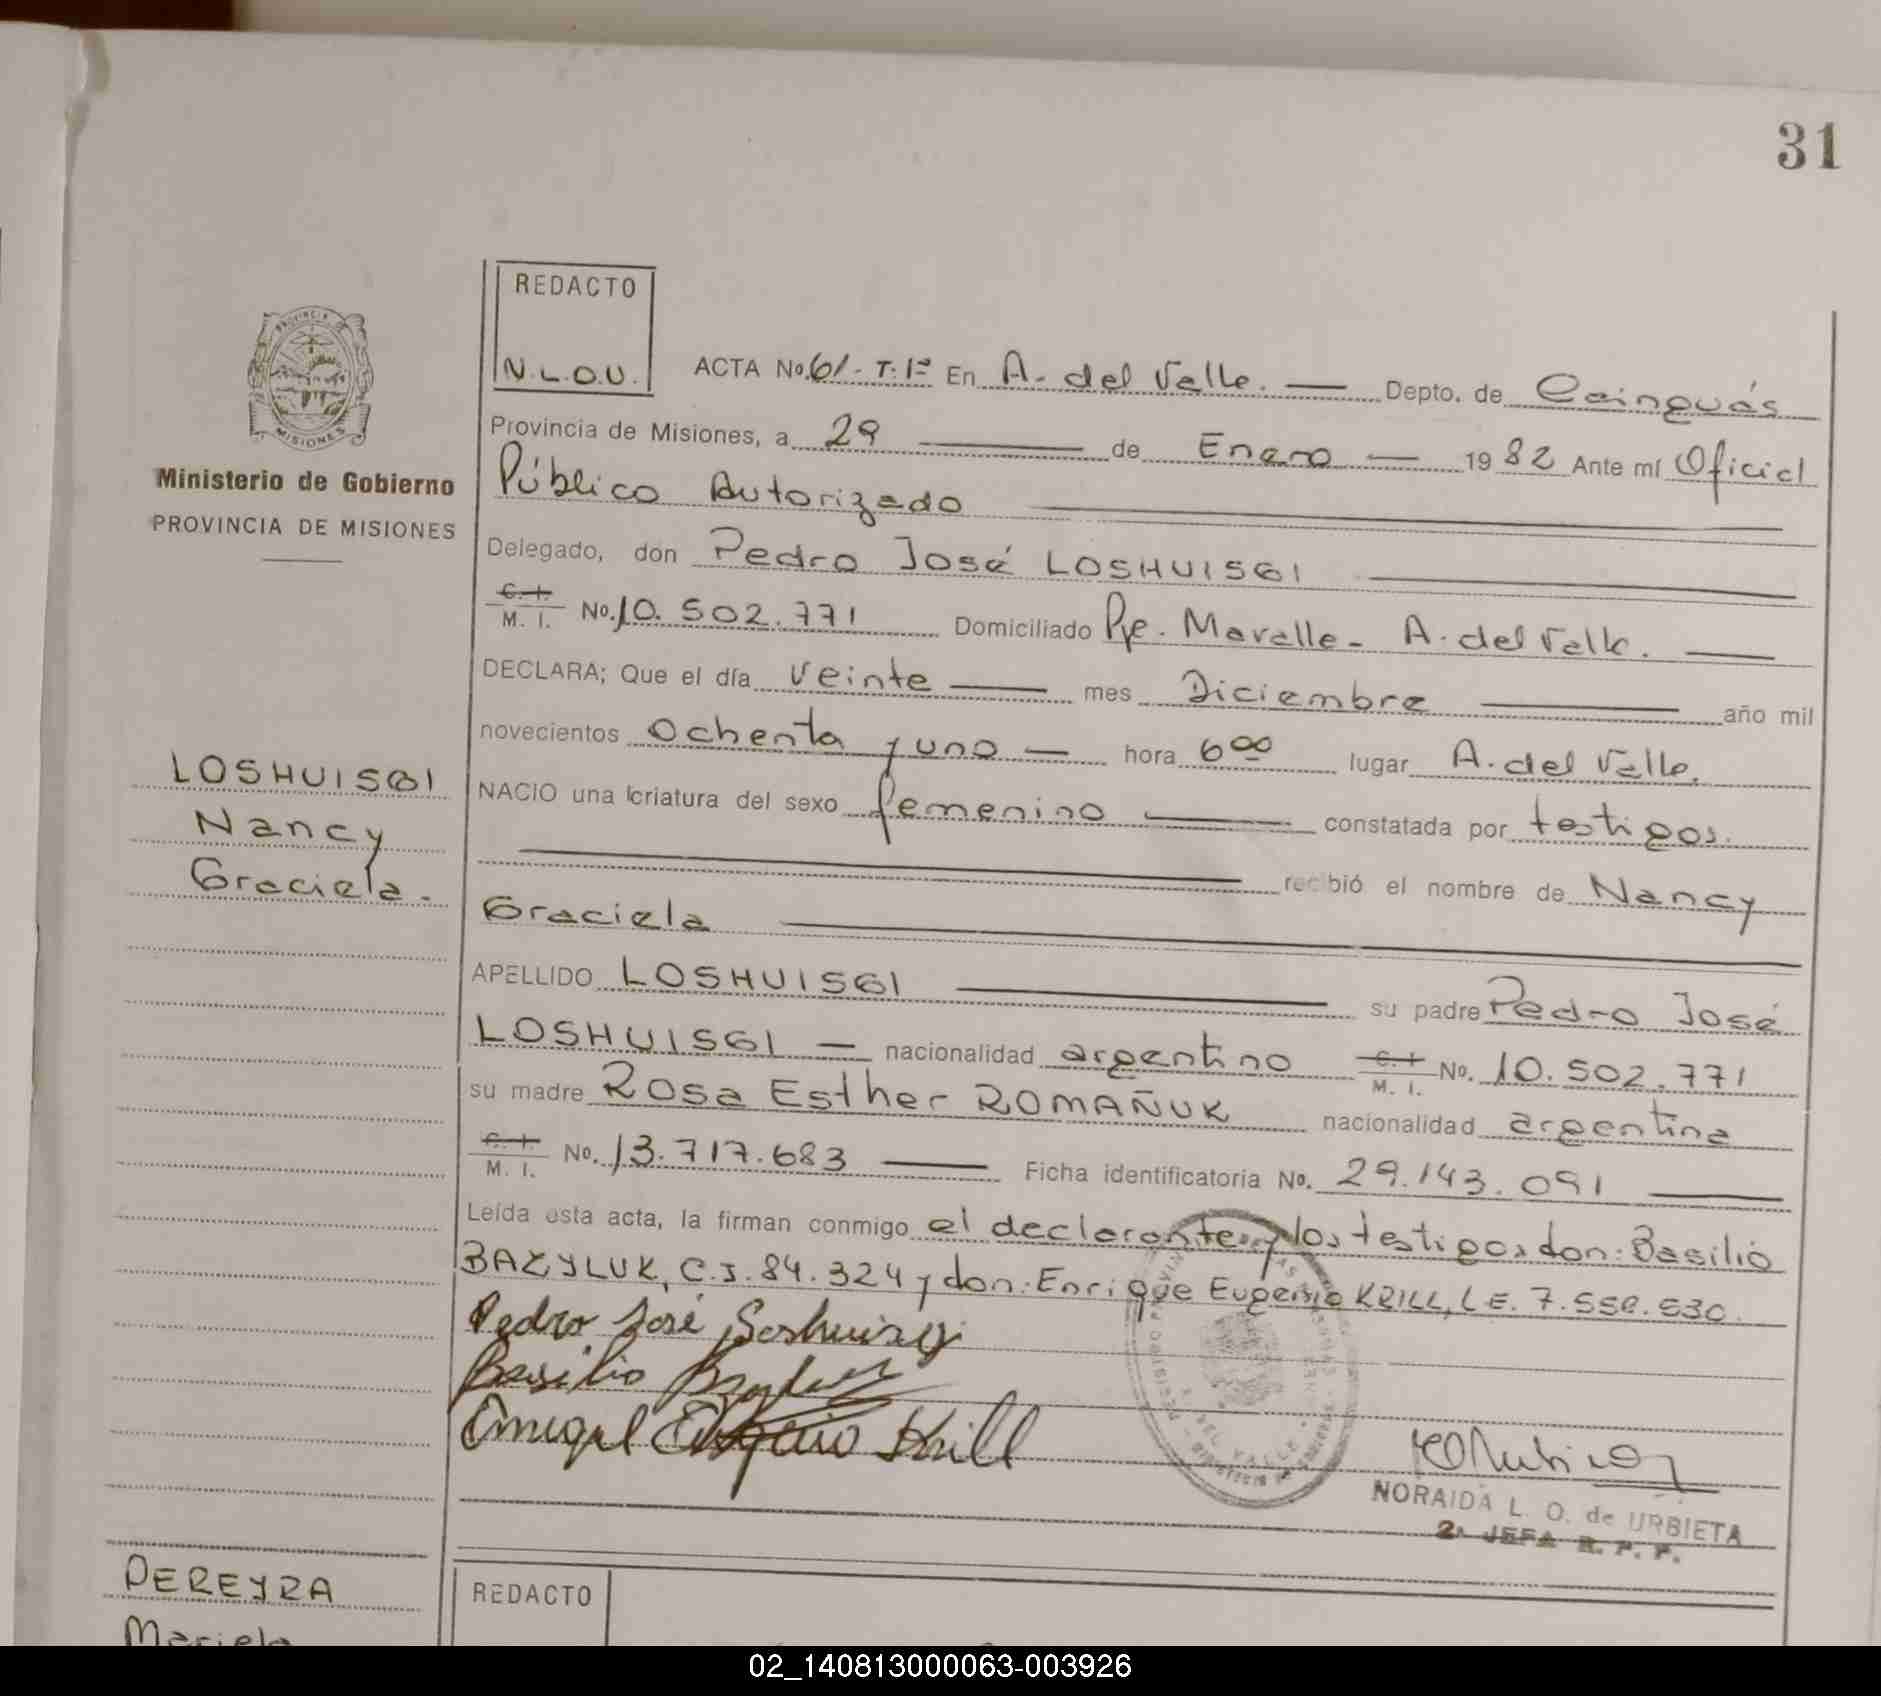 31
REDACTO
N.L.O.U.
ACTA No. 61- T: 1º En A. del Valle. Depto. de Cainguás
Provincia de Misiones, a 29 de Enero 1982 Ante mí Oficial
Público Autorizado
Ministerio de Gobierno
PROVINCIA DE MISIONES
Delegado, don Pedro José LOSHUISGI
C. I.
M. I. No. 10.502.771 Domiciliado Pje. Mavalle- A. del Valle.
DECLARA; Que el día veinte mes Diciembre año mil
novecientos ochenta y uno hora 6 00 lugar A. del Valle.
NACIO una criatura del sexo femenino constatada por testigos.
recibió el nombre de Nancy
Graciela
LOSHUISGI
Nancy
Graciela.
APELLIDO LOSHUISGI su padre Pedro José
LOSHUISGI nacionalidad argentino C. I.
M. I. No. 10.502.771
su madre Rosa Esther ROMAÑUK nacionalidad argentina
C. I.
M. I. No. 13.717.683 Ficha identificatoria No. 29.143.091
Leída esta acta, la firman conmigo el declarante y los testigos don: Basilio
BAZYLUK, C.I. 84.324 y don: Enrique Eugenio KRILL, L.E.
Pedro José Loshuisgi
Basilio
Enrique Eugenio Krill
DEL VALLE
NORAIDA L. O. de URBIETA
2ª JEFA R. P. P.
PEREYRA
Mariela
REDACTO
02_140813000063-003926